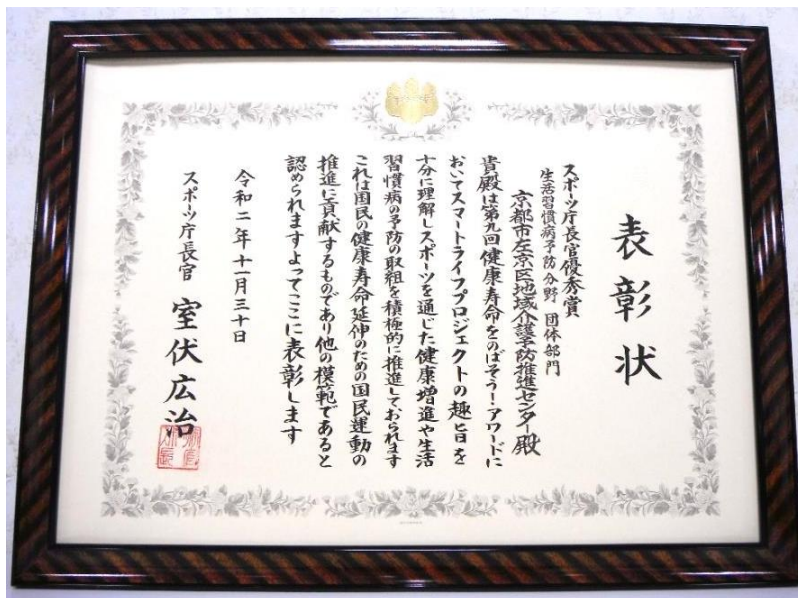 表彰状
スポーツ庁長官優秀賞
生活習慣病予防分野 団体部門
京都市左京区地域介護予防推進センター殿
貴殿は第九回健康寿命をのばそう！アワードに
おいてスマートライフプロジェクトの趣旨を
十分に理解しスポーツを通じた健康増進や生活
習慣病の予防の取組を積極的に推進しておられます
これは国民の健康寿命延伸のための国民運動の
推進に貢献するものであり他の模範であると
認められますよってここに表彰します
令和二年十一月三十日
スポーツ庁長官 室伏広治